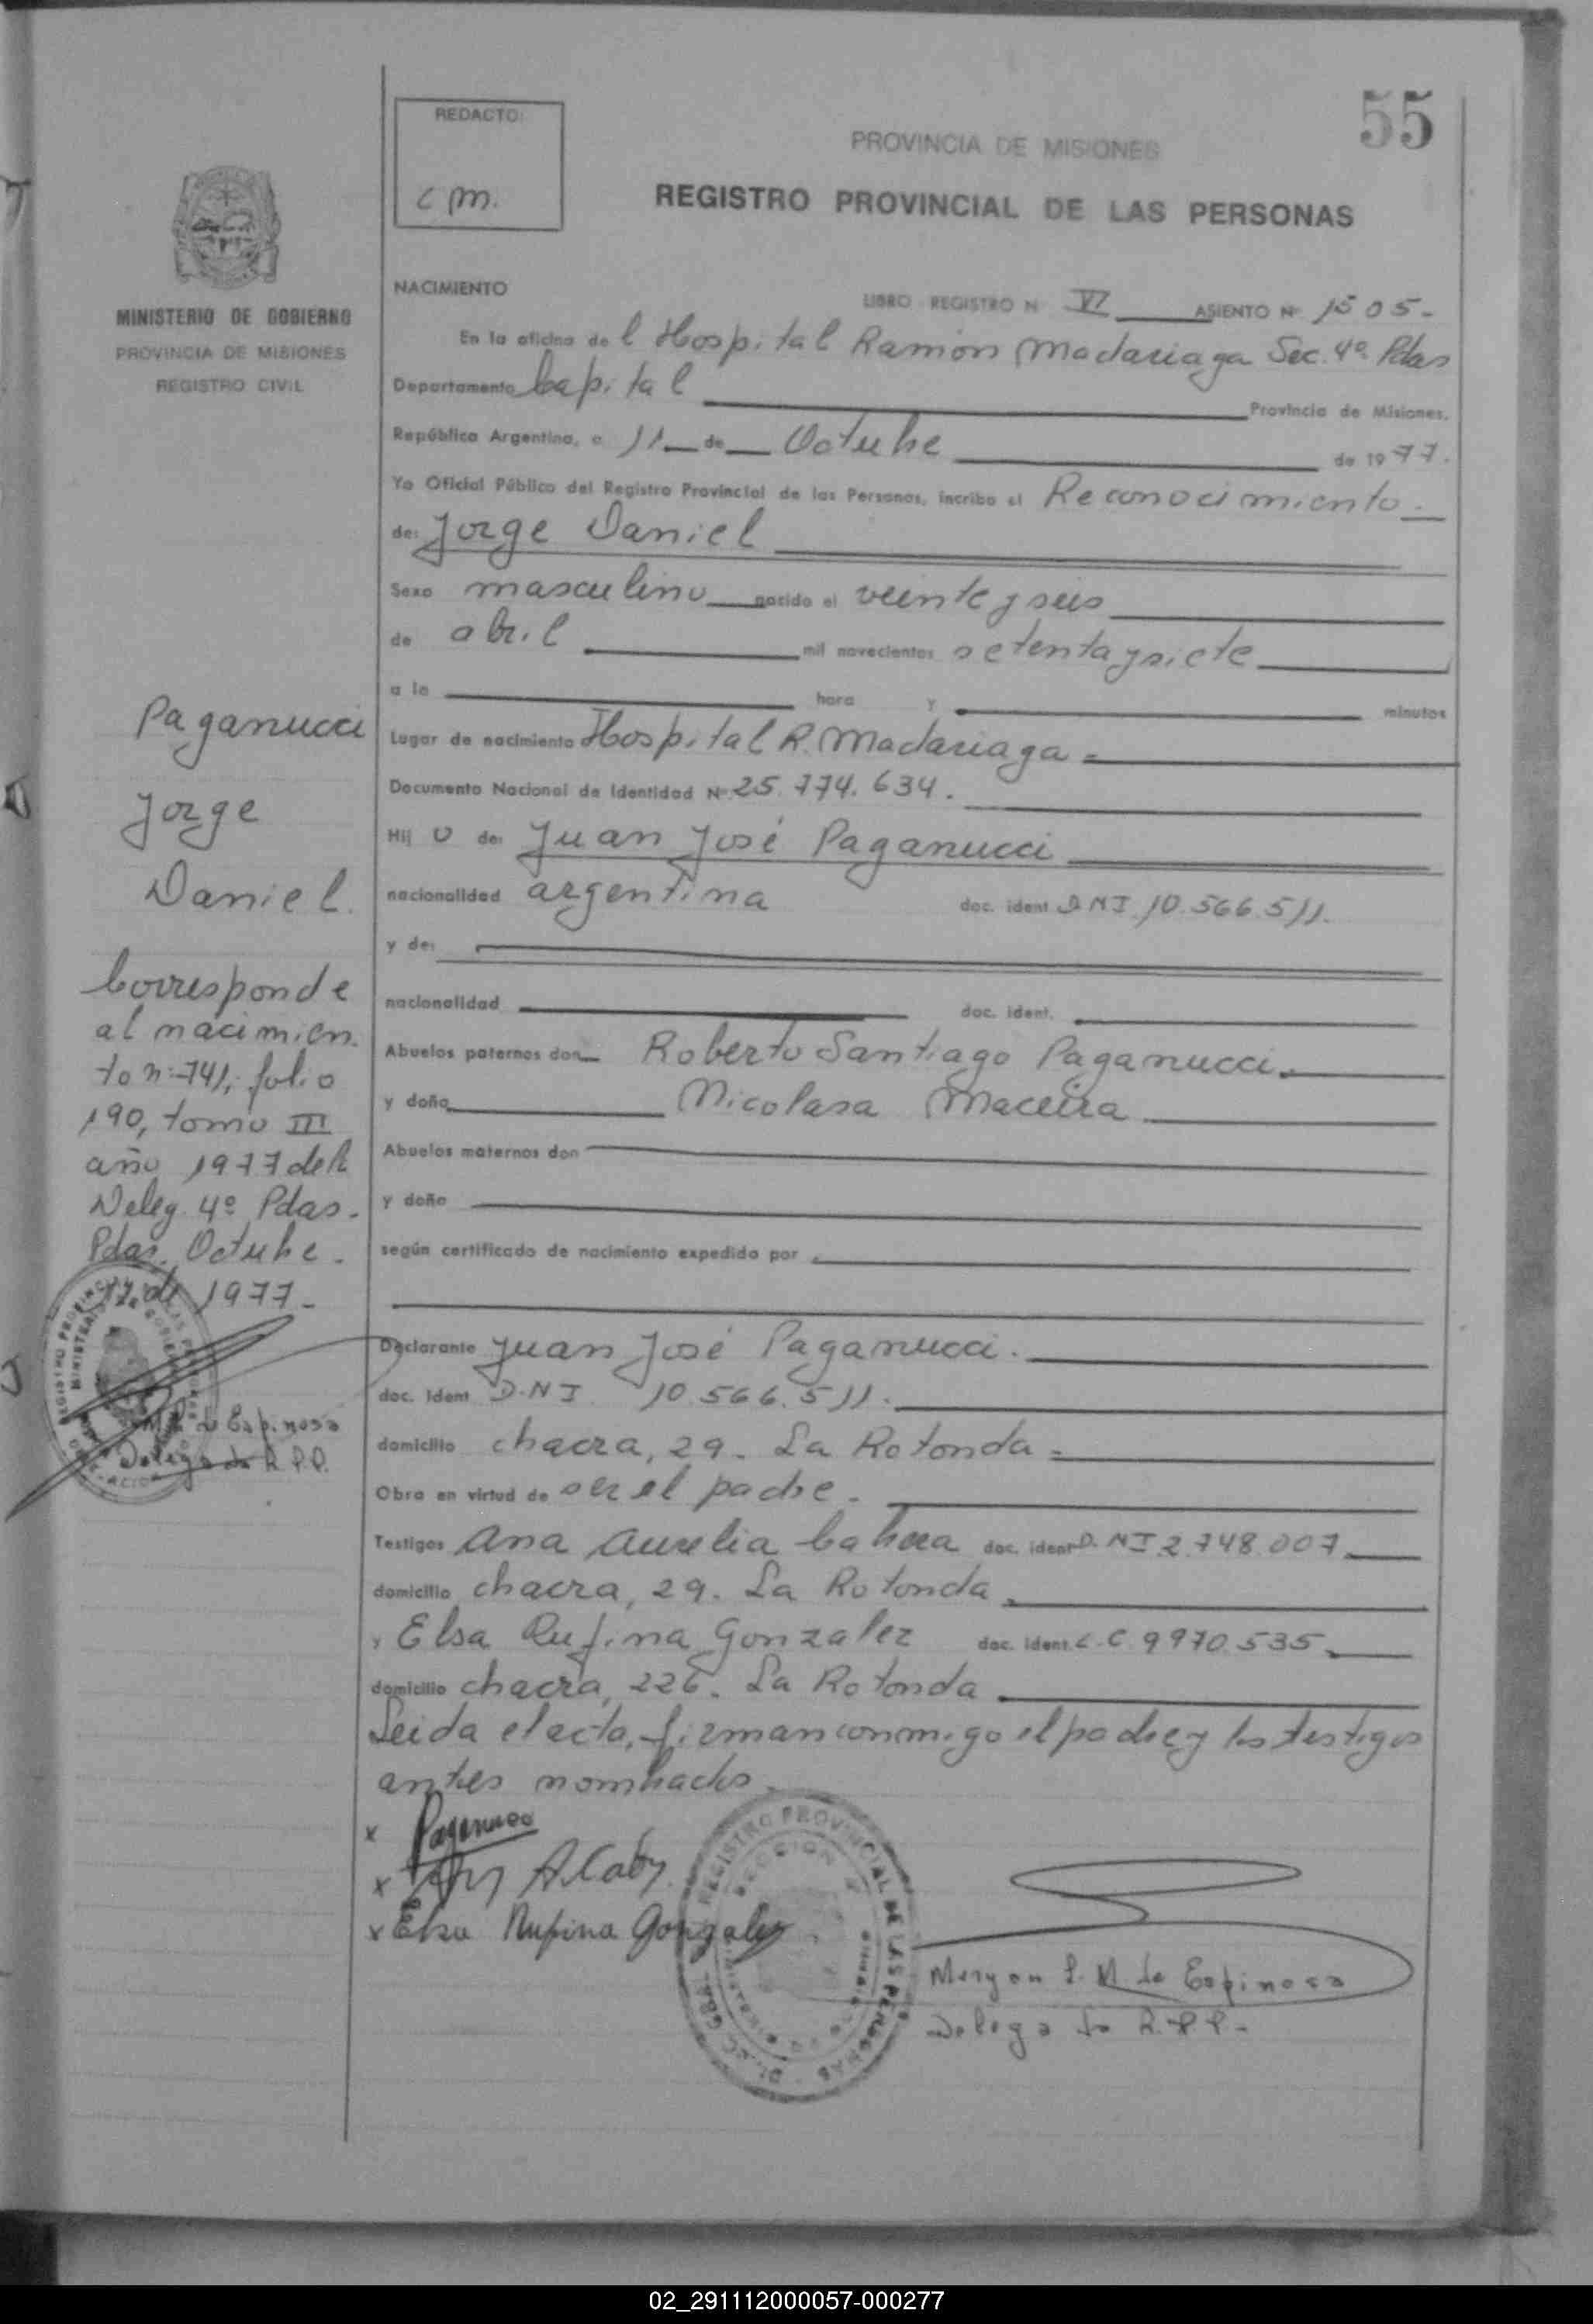 55
REDACTO:
C M.
PROVINCIA DE MISIONES
REGISTRO PROVINCIAL DE LAS PERSONAS
MINISTERIO DE GOBIERNO
PROVINCIA DE MISIONES
REGISTRO CIVIL
NACIMIENTO
LIBRO REGISTRO N VI ASIENTO Nº 1505-
En la oficina de l Hospital Ramón Madariaga Sec. 4º Pdas
Departamento Capital Provincia de Misiones.
República Argentina, a 11 de Octubre de 1977.
Yo Oficial Público del Registro Provincial de las Personas, incribo el Reconocimiento.
de: Jorge Daniel
Sexo masculino nacido el veinte y seis
de abril mil novecientos setenta y siete
a la hora y minutos
Lugar de nacimiento Hospital R. Madariaga-
Documento Nacional de Identidad Nº 25.774.634.
Hij o de: Juan José Paganucci
nacionalidad argentina doc. ident D N I 10.566.511.
y de:
nacionalidad doc. ident.
Abuelos paternos don Roberto Santiago Paganucci.
y doña Nicolasa Maceira
Abuelos maternos don
y doña
según certificado de nacimiento expedido por
Declarante Juan José Paganucci.
doc. Ident D.N I. 10.566.511.
domicilio chacra, 29. La Rotonda-
Obra en virtud de ser el padre.
Testigos Ana Aurelia Cabrera doc. ident D. N I 2.748.007
domicilio chacra, 29. La Rotonda.
y Elsa Rufina Gonzalez doc. ident L.C 9970.535
domicilio chacra, 226. La Rotonda
Leida el acta, firman conmigo el padre y los testigos
antes nombrados.
x Paganucci
x
x Elsa Rufina Gonzalez
L. M. de Espinosa
Delegada R.P.P.-
Paganucci
Jorge
Daniel.
Corresponde
al nacimien.
to nº 741, folio
190, tomo III
año 1977 de la
Deleg. 4º Pdas.
Pdas, Octubre.
12 de 1977-
de Espinosa
Delegada R.P.P.
REGISTRO PROVINCIAL DE LAS PERSONAS
02_291112000057-000277